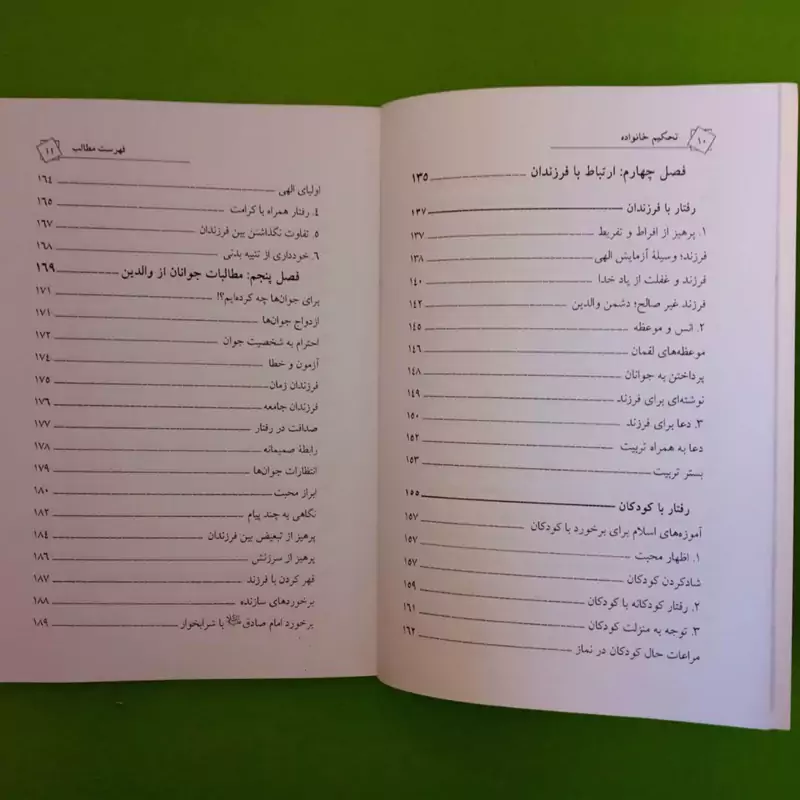 ۱۰ تحکیم خانواده
فصل چهارم: ارتباط با فرزندان ۱۳۵
رفتار با فرزندان ۱۳۷
۱. پرهیز از افراط و تفریط ۱۳۷
فرزند؛ وسیلهٔ آزمایش الهی ۱۳۸
فرزند و غفلت از یاد خدا ۱۴۰
فرزند غیر صالح؛ دشمن والدین ۱۴۲
۲. انس و موعظه ۱۴۵
موعظه‌های لقمان ۱۴۶
پرداختن به جوانان ۱۴۸
نوشته‌ای برای فرزند ۱۴۹
۳. دعا برای فرزند ۱۵۰
دعا به همراه تربیت ۱۵۲
بستر تربیت ۱۵۳
رفتار با کودکان ۱۵۵
آموزه‌های اسلام برای برخورد با کودکان ۱۵۷
۱. اظهار محبت ۱۵۷
شادکردن کودکان ۱۵۷
۲. رفتار کودکانه با کودکان ۱۵۹
۳. توجه به منزلت کودکان ۱۶۱
مراعات حال کودکان در نماز ۱۶۲
فهرست مطالب ۱۱
اولیای الهی ۱۶۴
۴. رفتار همراه با کرامت ۱۶۵
۵. تفاوت نگذاشتن بین فرزندان ۱۶۷
۶. خودداری از تنبیه بدنی ۱۶۸
فصل پنجم: مطالبات جوانان از والدین ۱۶۹
برای جوان‌ها چه کرده‌ایم؟! ۱۷۱
ازدواج جوان‌ها ۱۷۱
احترام به شخصیت جوان ۱۷۲
آزمون و خطا ۱۷۴
فرزندان زمان ۱۷۵
فرزندان جامعه ۱۷۶
صداقت در رفتار ۱۷۷
رابطهٔ صمیمانه ۱۷۸
انتظارات جوان‌ها ۱۷۹
ابراز محبت ۱۸۰
نگاهی به چند پیام ۱۸۲
پرهیز از تبعیض بین فرزندان ۱۸۴
پرهیز از سرزنش ۱۸۶
قهر کردن با فرزند ۱۸۷
برخوردهای سازنده ۱۸۸
برخورد امام صادق با شرابخوار ۱۸۹